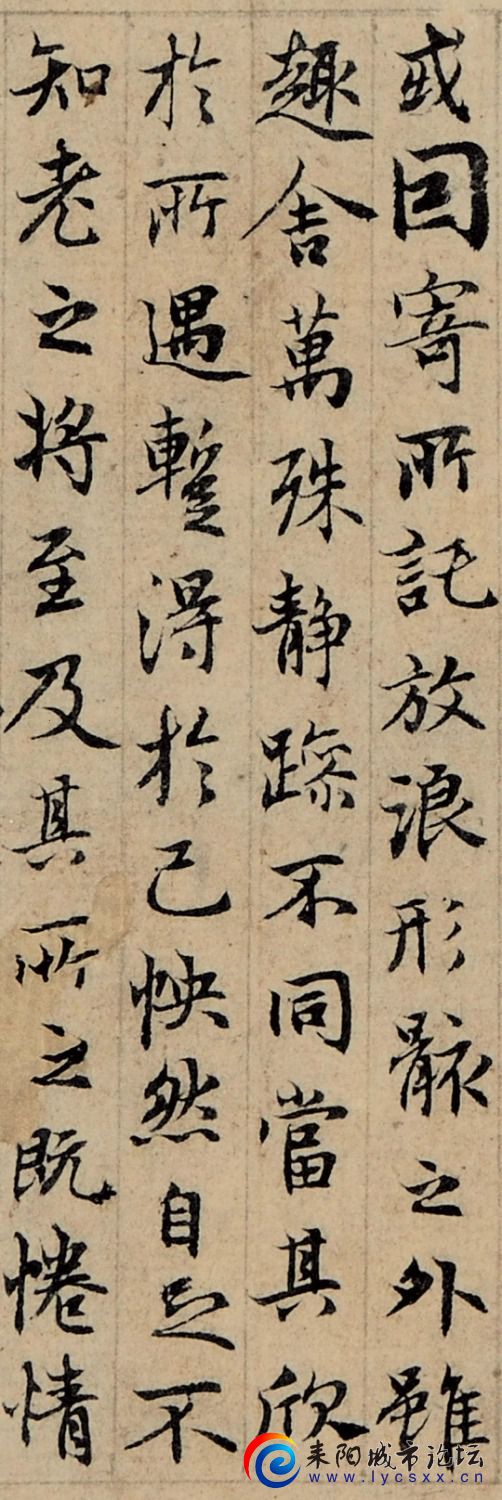 或因寄所託放浪形骸之外雖
趣舍萬殊静躁不同當其欣
於所遇蹔得於己怏然自足不
知老之將至及其所之既惓情
耒阳城市论坛
www.lycsxx.cn